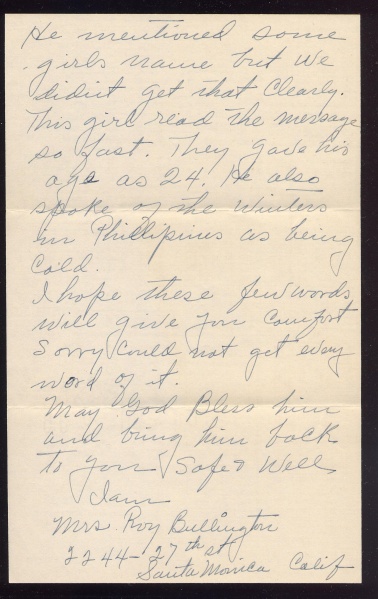 He mentioned some
girls name but we
didn't get that clearly.
This girl read the message
so fast. They gave his
age as 24. He also
spoke of the Winters
in Phillipines as being
cold.
I hope these few words
will give you comfort
Sorry could not get evry
word of it.
May God Bless him
and bring him back
to you Safe & Well
I am
Mrs. Roy Bullington
2244-27th st
Santa Monica Calif